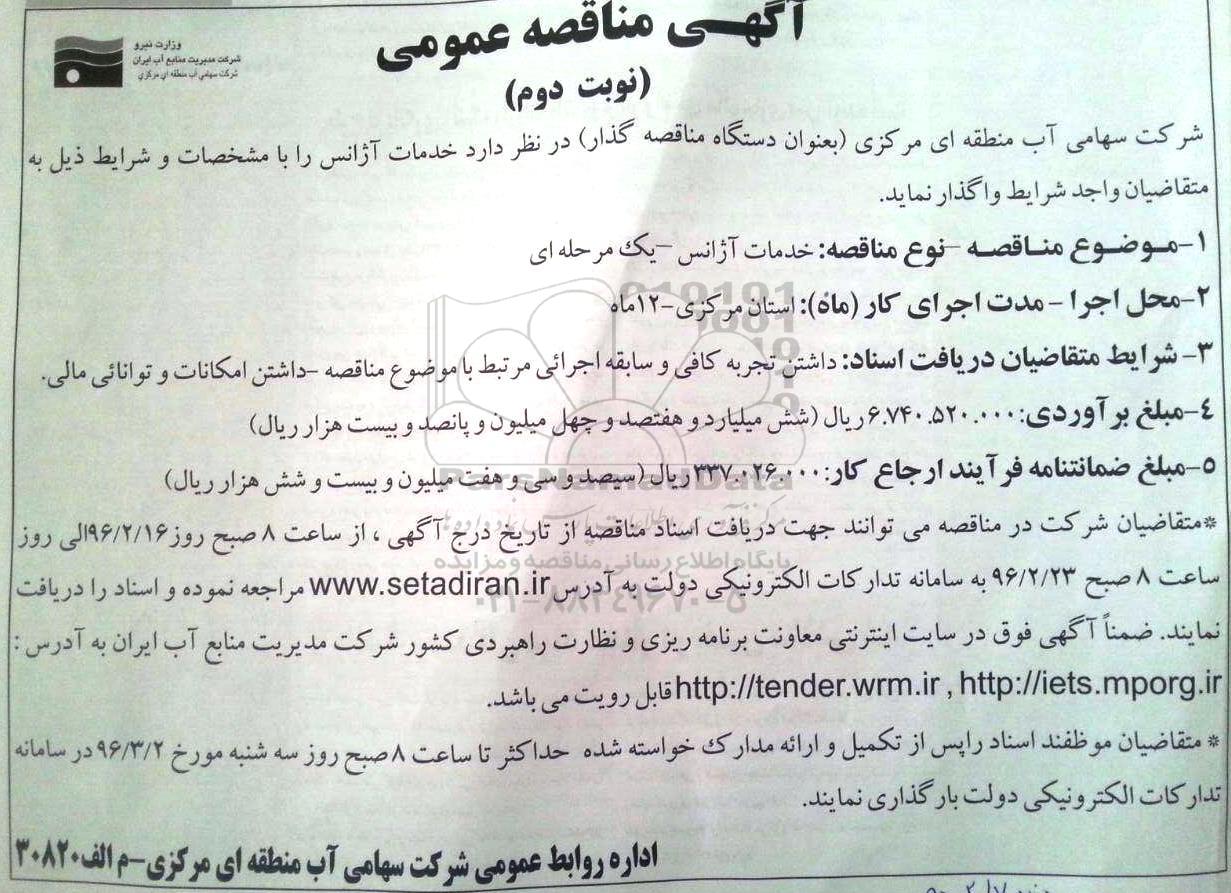 آگهی مناقصه عمومی
(نوبت دوم)
وزارت نیرو
شرکت مدیریت منابع آب ایران
شرکت سهامی آب منطقه ای مرکزی
شرکت سهامی آب منطقه ای مرکزی (بعنوان دستگاه مناقصه گذار) در نظر دارد خدمات آژانس را با مشخصات و شرایط ذیل به
متقاضیان واجد شرایط واگذار نماید.
۱-موضوع مناقصه -نوع مناقصه: خدمات آژانس -یک مرحله ای
۲-محل اجرا - مدت اجرای کار (ماه): استان مرکزی-۱۲ماه
۳- شرایط متقاضیان دریافت اسناد: داشتن تجربه کافی و سابقه اجرائی مرتبط با موضوع مناقصه -داشتن امکانات و توانائی مالی.
۴-مبلغ برآوردی: ۶.۷۴۰.۵۲۰.۰۰۰ریال (شش میلیارد و هفتصد و چهل میلیون و پانصد و بیست هزار ریال)
۵-مبلغ ضمانتنامه فرآیند ارجاع کار: ۳۳۷.۰۲۶.۰۰۰ریال (سیصد و سی و هفت میلیون و بیست و شش هزار ریال)
*متقاضیان شرکت در مناقصه می توانند جهت دریافت اسناد مناقصه از تاریخ درج آگهی ، از ساعت ۸ صبح روز ۹۶/۲/۱۶الی روز
ساعت ۸ صبح ۹۶/۲/۲۳ به سامانه تدارکات الکترونیکی دولت به آدرس www.setadiran.ir مراجعه نموده و اسناد را دریافت
نمایند. ضمناً آگهی فوق در سایت اینترنتی معاونت برنامه ریزی و نظارت راهبردی کشور شرکت مدیریت منابع آب ایران به آدرس :
http://tender.wrm.ir , http://iets.mporg.ir قابل رویت می باشد.
* متقاضیان موظفند اسناد راپس از تکمیل و ارائه مدارک خواسته شده حداکثر تا ساعت ۸ صبح روز سه شنبه مورخ ۹۶/۳/۲ در سامانه
تدارکات الکترونیکی دولت بارگذاری نمایند.
اداره روابط عمومی شرکت سهامی آب منطقه ای مرکزی-م الف۳۰۸۲۰
ParsNamadData
پایگاه اطلاع رسانی مناقصه و مزایده
۰۲۱-۸۸۳۴۹۶۷۰-۵